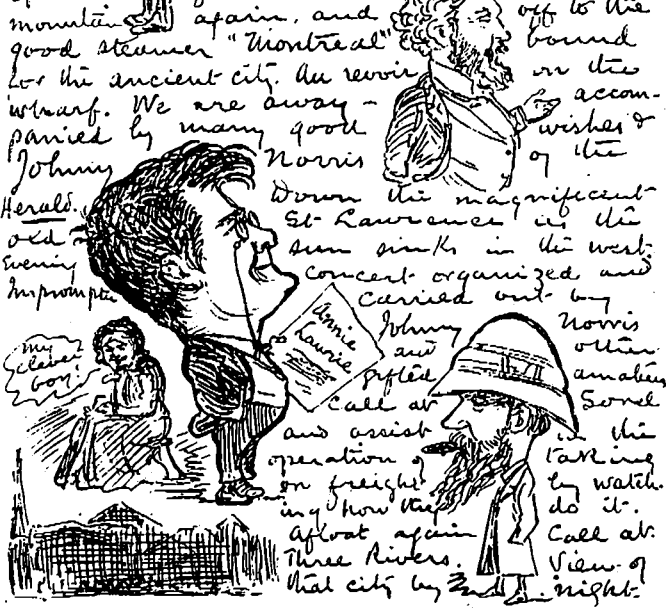 mountain again, and off to the
good steamer "Montreal" bound
for the ancient city. Au revoir on the
wharf. We are away — accom-
panied by many good wishes &
Johnny Norris of the
Herald. Down the magnificent
old St Lawrence as the
sun sinks in the west.
Evening concert organized and
Impromptu carried out by
Johnny Norris
and other
gifted amateurs
Call at Sorel
and assist in the
operation of taking
on freight by watch-
ing how they do it.
Afloat again Call at
Three Rivers. View of
that city by night.
my
clever
boy!
Annie
Laurie